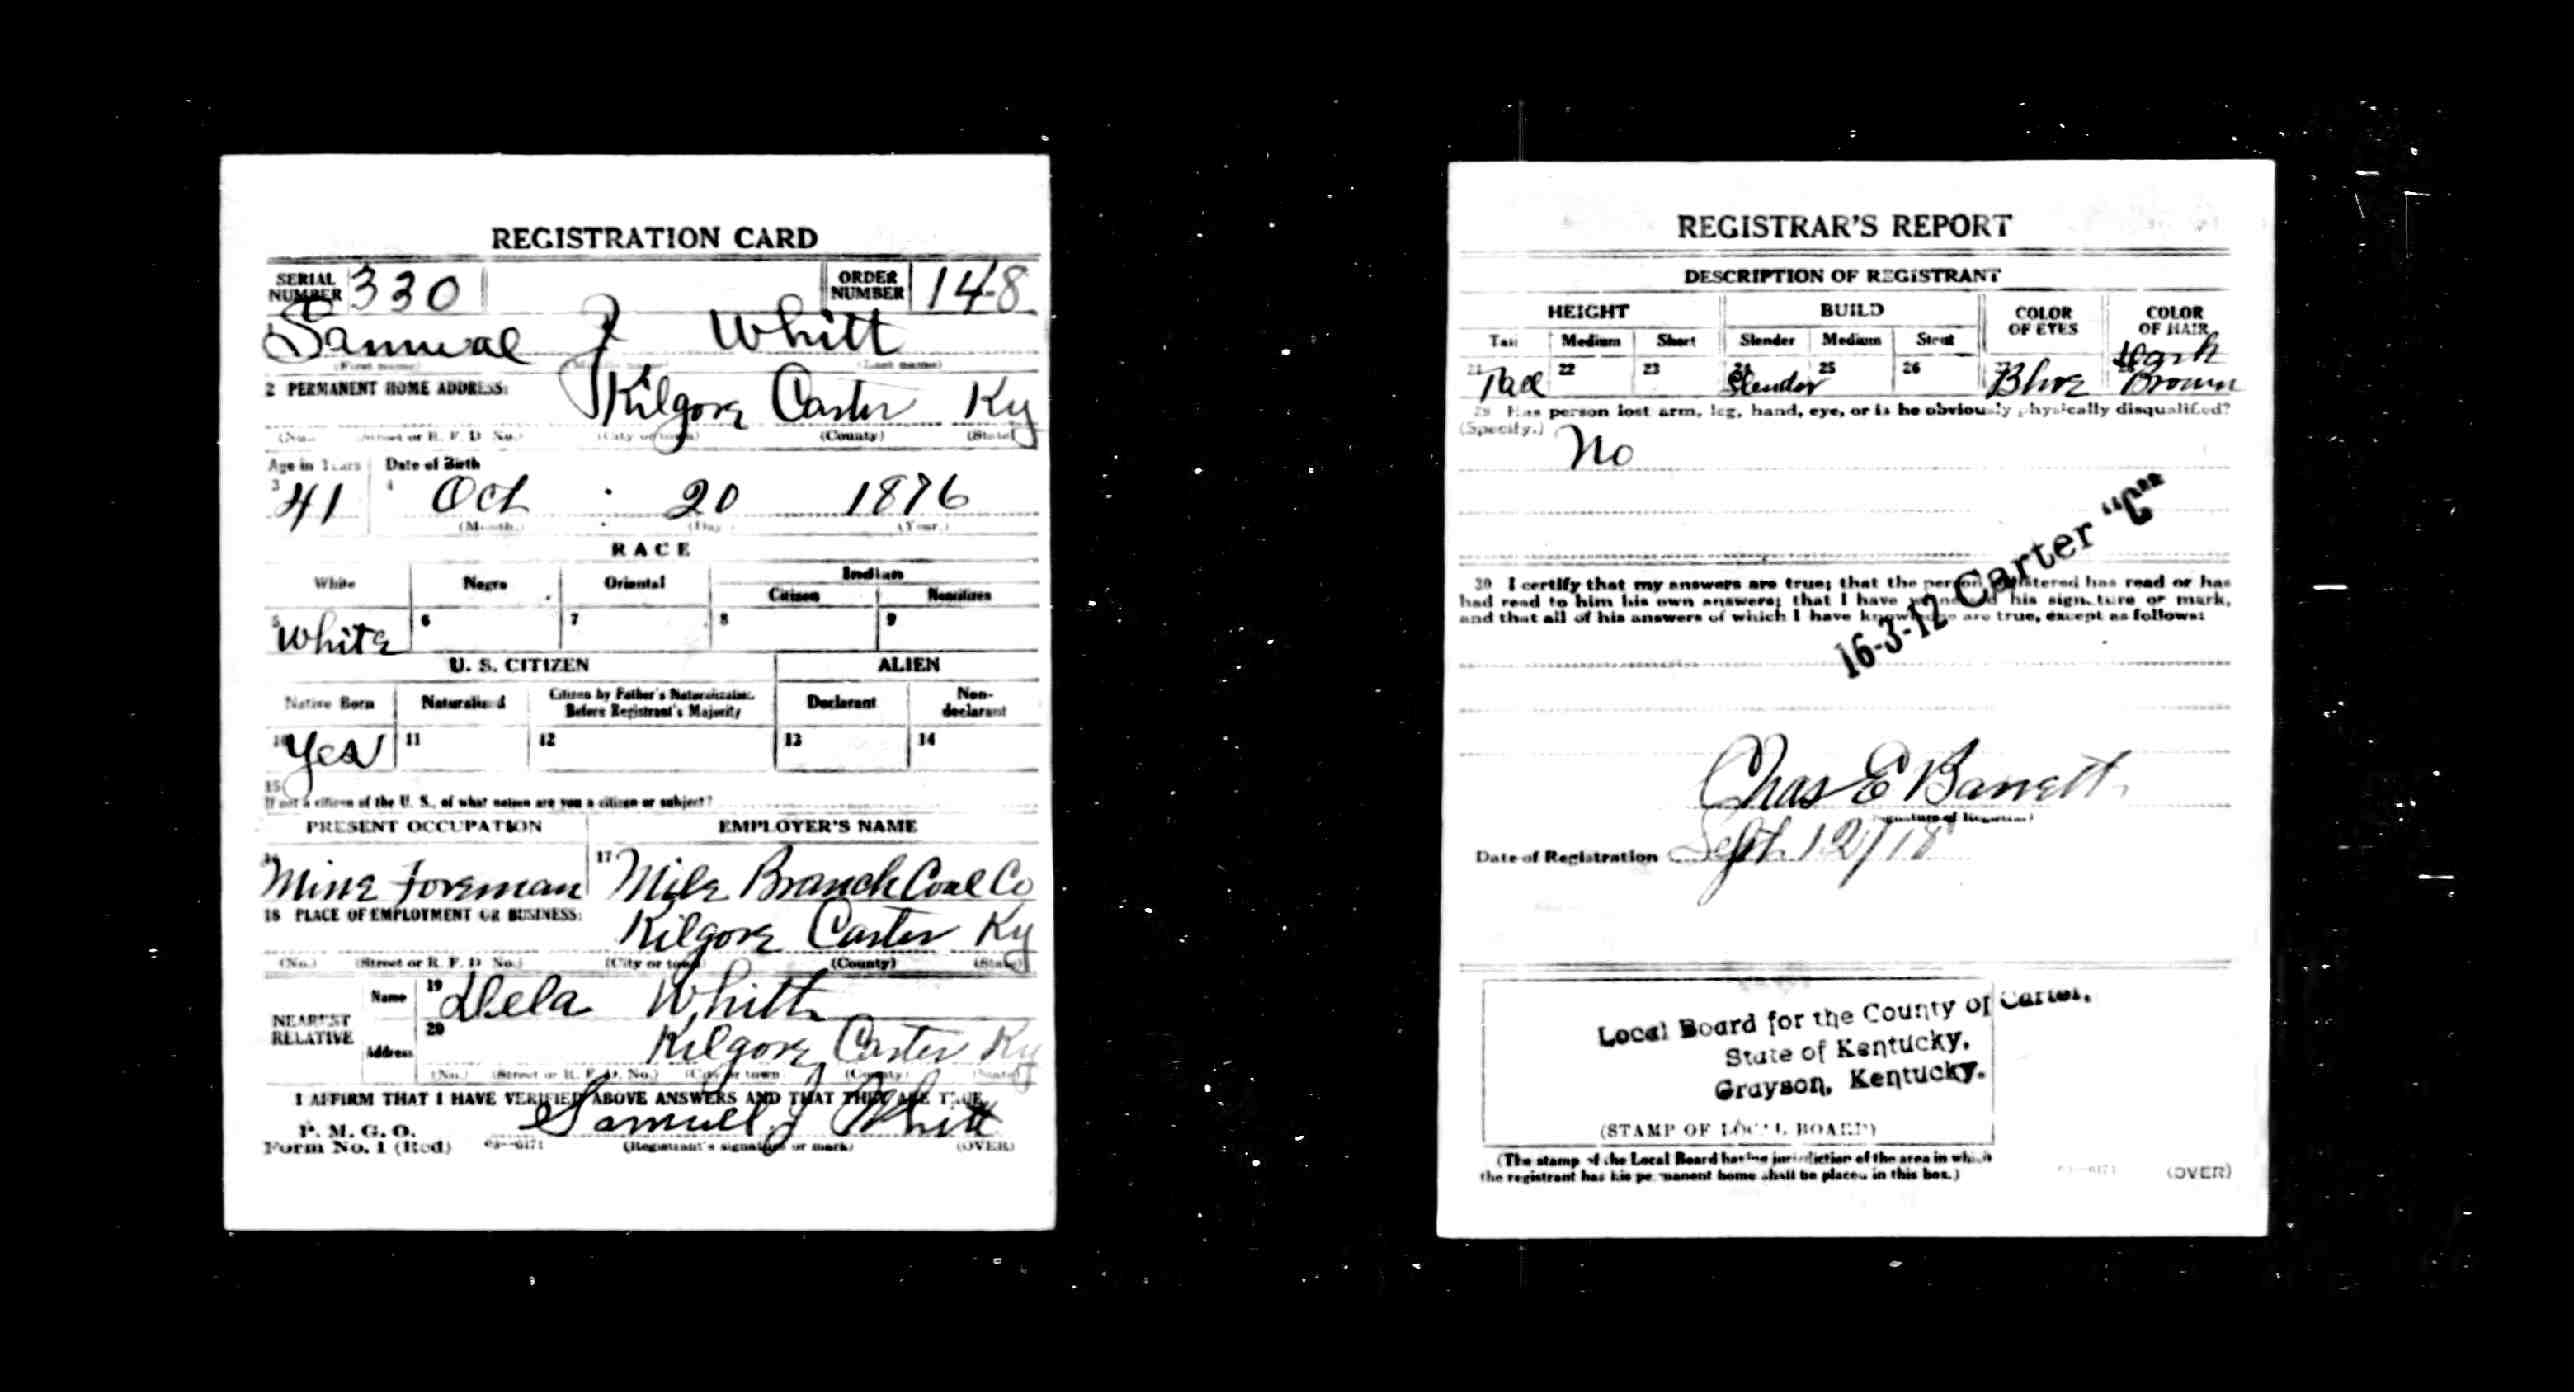 REGISTRATION CARD
SERIAL NUMBER 330 ORDER NUMBER 148
Samueal J Whitt
(First name) (Middle name) (Last name)
2 PERMANENT HOME ADDRESS:
Kilgore Carter Ky
(No.) (Street or R. F. D. No.) (City or town) (County) (State)
Age in Years Date of Birth
3 41 4 Oct 20 1876
(Month.) (Day.) (Year.)
RACE
White Negro Oriental Indian
Citizen Noncitizen
5 White 6 7 8 9
U. S. CITIZEN ALIEN
Native Born Naturalized Citizen by Father's Naturalization Before Registrant's Majority Declarant Non-declarant
10 Yes 11 12 13 14
15
If not a citizen of the U. S., of what nation are you a citizen or subject?
PRESENT OCCUPATION EMPLOYER'S NAME
16 Mine Foreman 17 Mile Branch Coal Co
18 PLACE OF EMPLOYMENT OR BUSINESS:
Kilgore Carter Ky
(No.) (Street or R. F. D. No.) (City or town) (County) (State)
NEAREST RELATIVE
Name 19 Dela Whitt
Address 20 Kilgore Carter Ky
(No.) (Street or R. F. D. No.) (City or town) (County) (State)
I AFFIRM THAT I HAVE VERIFIED ABOVE ANSWERS AND THAT THEY ARE TRUE
P. M. G. O.
Form No. 1 (Red) 03—6171 Samuel J Whitt
(Registrant's signature or mark) (OVER)
REGISTRAR'S REPORT
DESCRIPTION OF REGISTRANT
HEIGHT BUILD COLOR OF EYES COLOR OF HAIR
Tall Medium Short Slender Medium Stout
21 Tall 22 23 24 Slender 25 26 27 Blue 28 Dark Brown
29 Has person lost arm, leg, hand, eye, or is he obviously physically disqualified?
(Specify.) No
30 I certify that my answers are true; that the person registered has read or has
had read to him his own answers; that I have witnessed his signature or mark,
and that all of his answers of which I have knowledge are true, except as follows:
16-3-12 Carter "C"
Chas E Barrett
(Signature of Registrar)
Date of Registration Sept 12/18
Local Board for the County of Carter,
State of Kentucky,
Grayson, Kentucky.
(STAMP OF LOCAL BOARD)
(The stamp of the Local Board having jurisdiction of the area in which
the registrant has his permanent home shall be placed in this box.)
03—6171 (OVER)